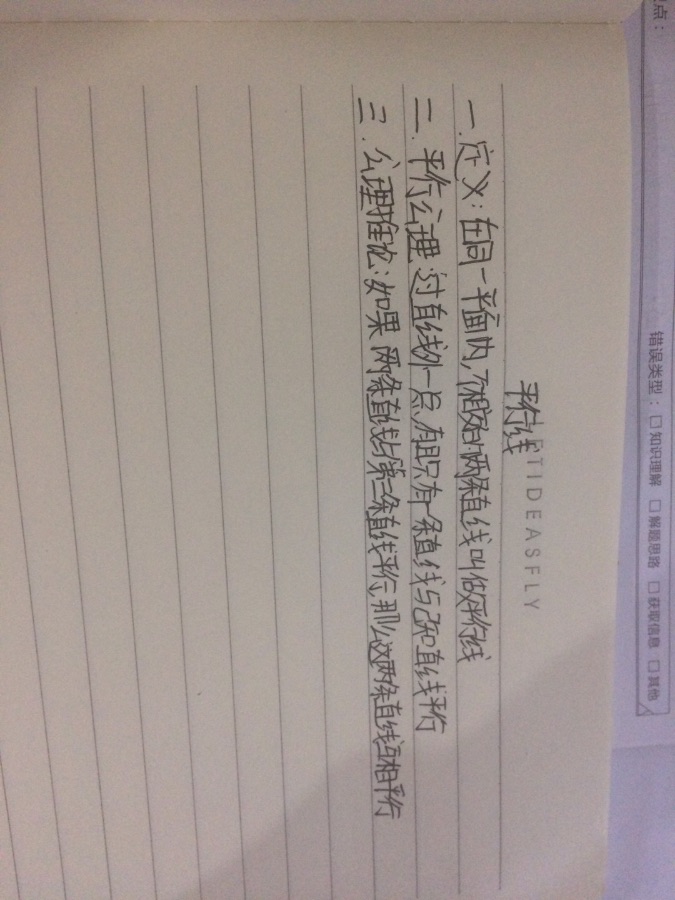 点：
错误类型：□知识理解 □解题思路 □获取信息 □其他
TIDEASFLY
平行线
一.定义：在同一平面内，不相交的两条直线叫做平行线
二.平行公理：过直线外一点，有且只有一条直线与已知直线平行
三.公理推论：如果两条直线与第三条直线平行，那么这两条直线互相平行